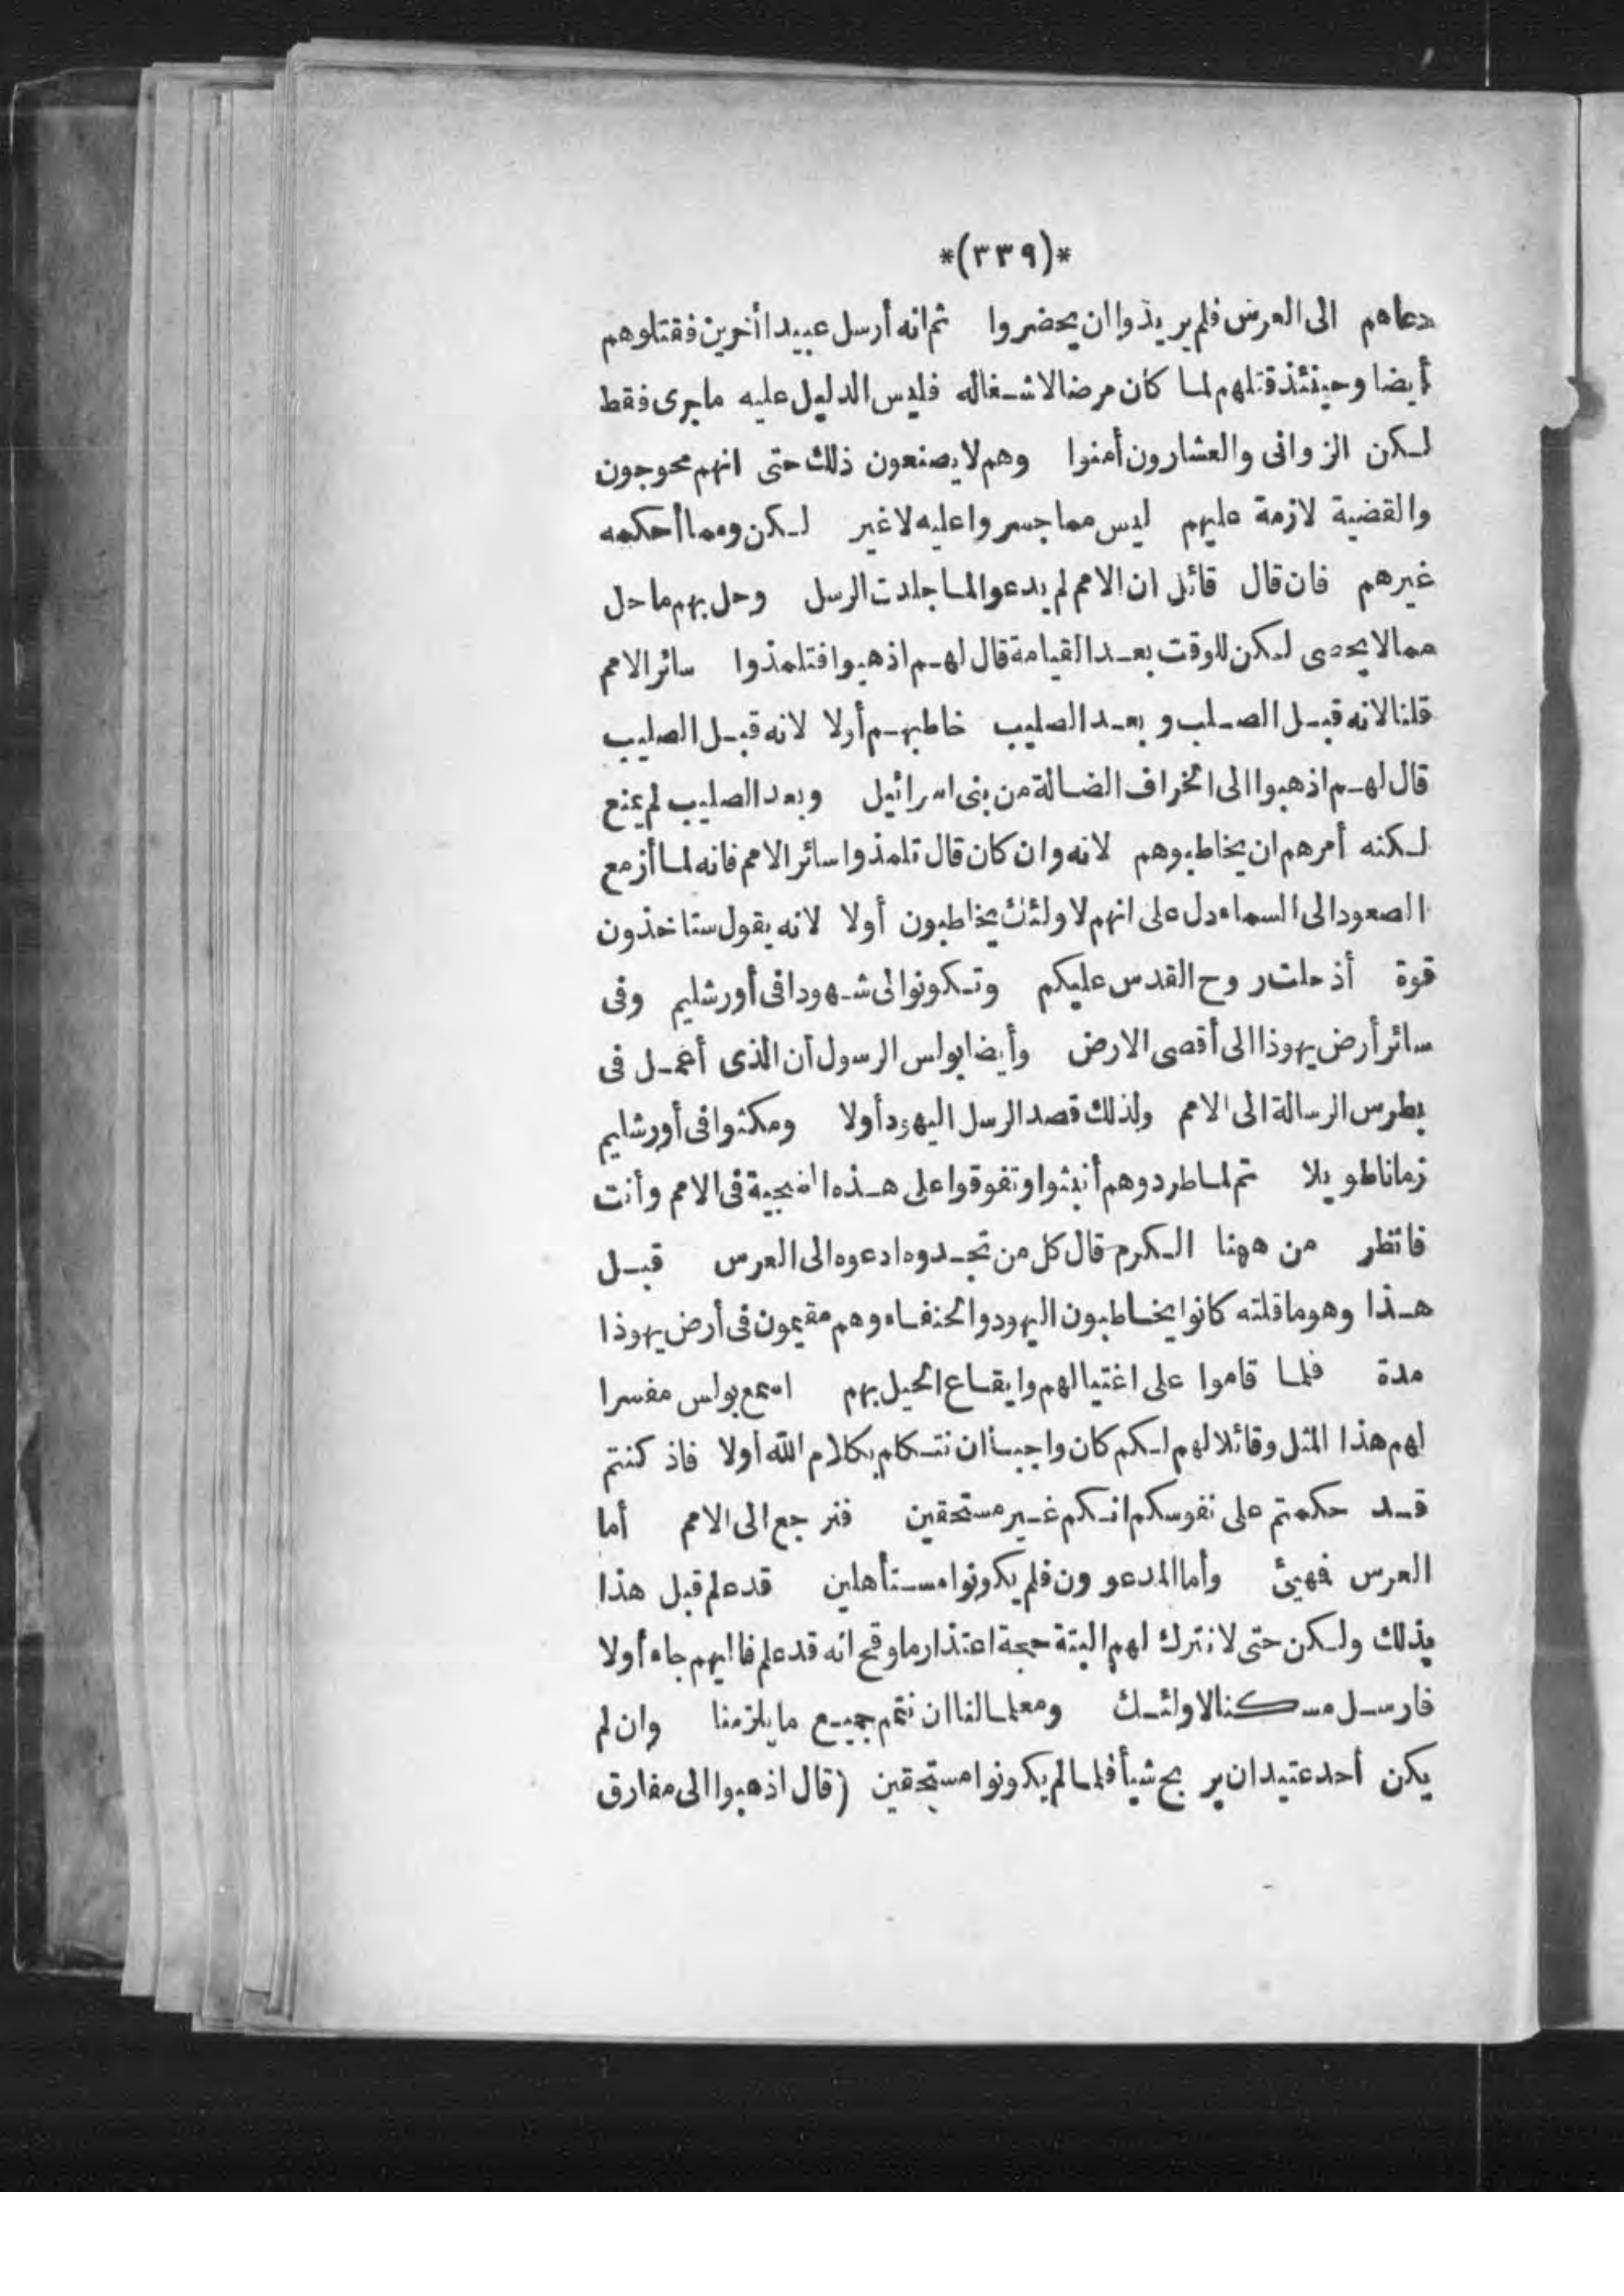 *(٣٣٩)*
دعاهم الى العرس فلم يريذوا ان يحضروا ثم انه أرسل عبيدا أخرين فقتلوهم
أيضا وحينئذ قتلهم لما كان مرضا لاشغاله فليس الدليل عليه ماجرى فقط
لكن الزوانى والعشارون أمنوا وهم لا يصنعون ذلك حتى انهم محوجون
والقضية لازمة عليهم ليس مما جسروا عليه لا غير لكن ومما أحكمه
غيرهم فان قال قائل ان الامم لم يدعوا لما جلدت الرسل وحل بهم ما حل
ممالا يحصى لكن للوقت بعد القيامة قال لهم اذهبوا فتلمذوا سائر الامم
قلنا لانه قبل الصلب وبعد الصليب خاطبهم أولا لانه قبل الصليب
قال لهم اذهبوا الى الخراف الضالة من بنى اسرائيل وبعد الصليب لم يمنع
لكنه أمرهم ان يخاطبوهم لانه وان كان قال تلمذوا سائر الامم فانه لما أزمع
الصعود الى السماء دل على انهم لاولئك يخاطبون أولا لانه يقول ستاخذون
قوة أذ حلت روح القدس عليكم وتكونوا لى شهودا فى أورشليم وفى
سائر أرض يهوذا الى أقصى الارض وأيضا بولس الرسول أن الذى أعمل فى
بطرس الرسالة الى الامم ولذلك قصد الرسل اليهود أولا ومكثوا فى أورشليم
زمانا طويلا تم لما طردوهم أنبثوا وتفوقوا على هذه السجية فى الامم وأنت
فانظر من ههنا الكرم قال كل من تجدوه ادعوه الى العرس قبل
هذا وهو ما قلته كانوا يخاطبون اليهود والحنفاء وهم مقيمون فى أرض يهوذا
مدة فلما قاموا على اغتيالهم وايقاع الحيل بهم اسمع بولس مفسرا
لهم هذا المثل وقائلا لهم لكم كان واجبا أن نتكلم بكلام الله أولا فاذ كنتم
قد حكمتم على نفوسكم انكم غير مستحقين فنرجع الى الامم أما
العرس فهيئ وأما المدعوون فلم يكونوا مستأهلين قد علم قبل هذا
بذلك ولكن حتى لا نترك لهم البتة حجة اعتذار ما وقح انه قد علم فاليهم جاء أولا
فارسل مسكنا لاولئك ومعلما لنا ان نتمم جميع ما يلزمنا وان لم
يكن أحد عتيد ان يربح شيأ فلما لم يكونوا مستحقين (قال اذهبوا الى مفارق